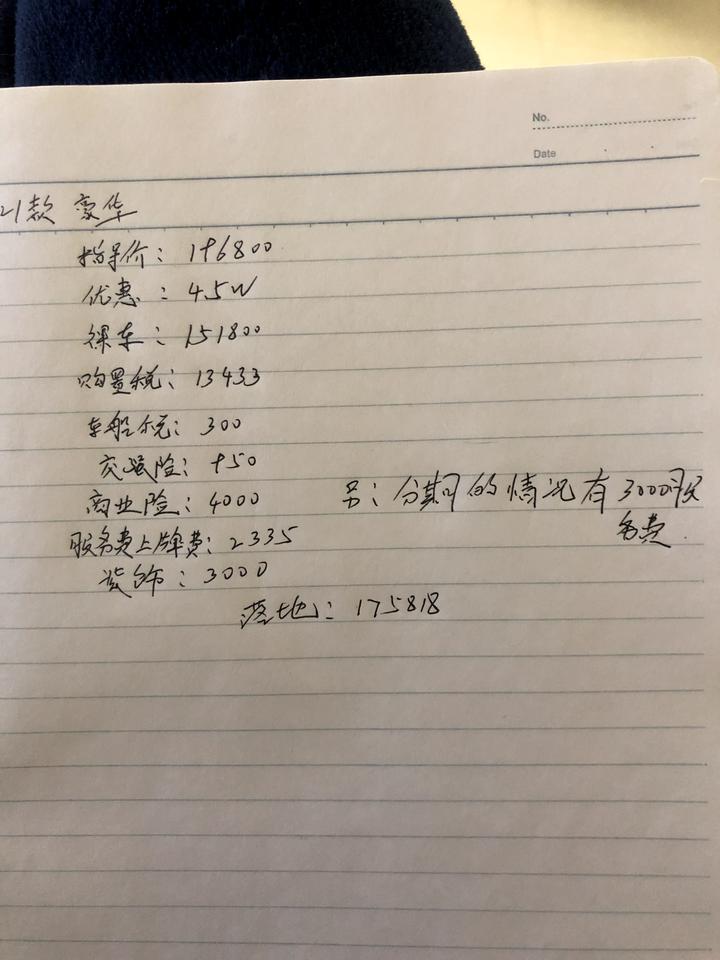 No.
Date
21款 豪华
指导价：196800
优惠：4.5W
裸车：151800
购置税：13433
车船税：300
交强险：950
商业险：4000
另：分期的情况有3000服
务费
服务费上牌费：2335
装饰：3000
落地：175818